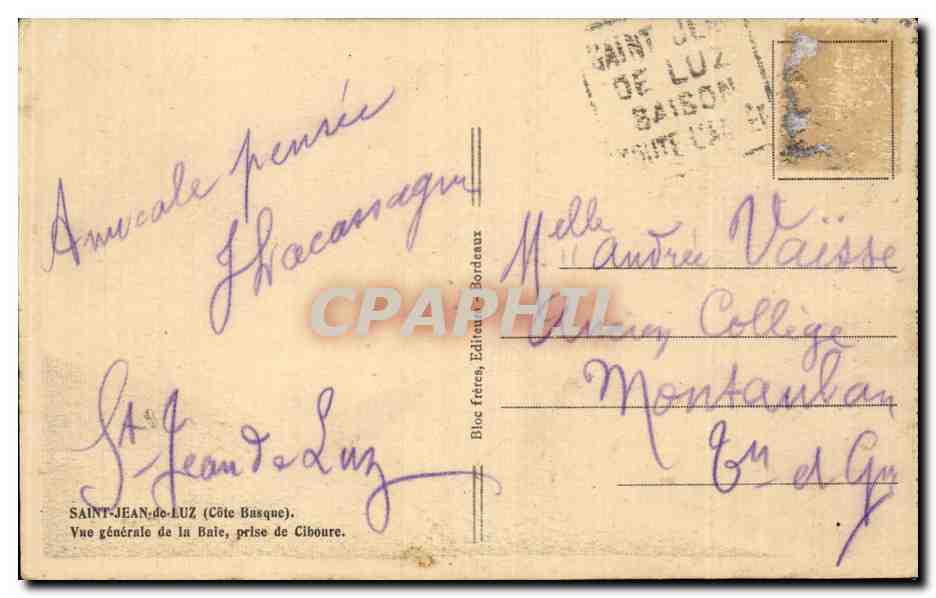 SAINT JEAN
DE LUZ
SAISON
TOUTE L'AN
Amicale pensée
J Lacassagne
St Jean de Luz
SAINT-JEAN-de-LUZ (Côte Basque).
Vue générale de la Baie, prise de Ciboure.
Bloc frères, Editeurs - Bordeaux
CPAPHIL
Melle Andrée Vaïsse
Collège
Montauban
Tn et Gne